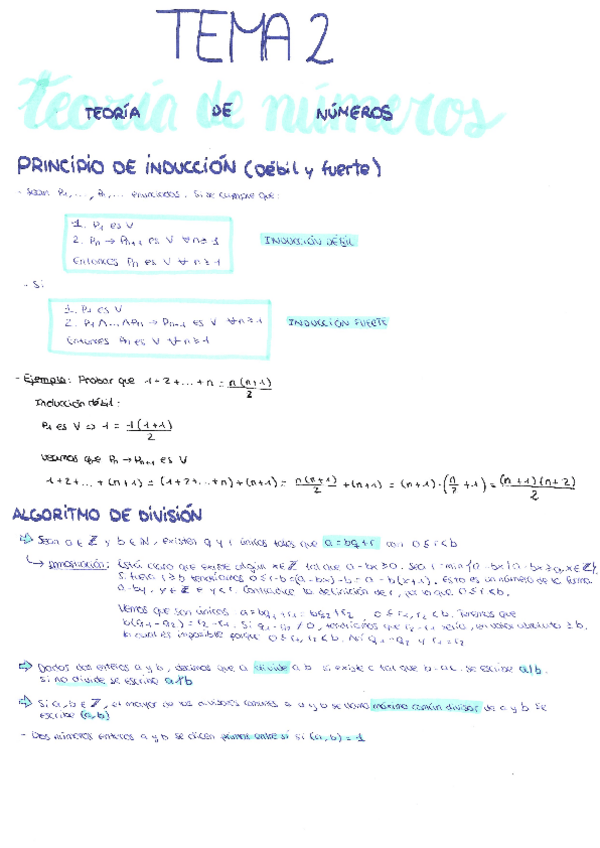 TEMA 2
teoría de números
TEORÍA DE NÚMEROS
PRINCIPIO DE INDUCCIÓN (Débil y fuerte)
- Sean P₁, ..., Pₙ, ... enunciados. Si se cumple que:
1. P₁ es V
2. Pₙ → Pₙ₊₁ es V ∀ n ≥ 1
Entonces Pₙ es V ∀ n ≥ 1
INDUCCIÓN DÉBIL
- Si
1. P₁ es V
2. P₁ ∧ ... ∧ Pₙ → Pₙ₊₁ es V ∀ n ≥ 1
Entonces Pₙ es V ∀ n ≥ 1
INDUCCIÓN FUERTE
- Ejemplo: Probar que 1+2+...+n = n(n+1)/2
Inducción débil:
P₁ es V ⇒ 1 = 1(1+1)/2
Veamos que Pₙ → Pₙ₊₁ es V
1+2+...+(n+1) = (1+2+...+n)+(n+1) = n(n+1)/2 + (n+1) = (n+1)·(n/2 + 1) = (n+1)(n+2)/2
ALGORITMO DE DIVISIÓN
⇒ Sean a ∈ ℤ y b ∈ ℕ, existen q y r únicos tales que a = bq + r con 0 ≤ r < b
↳ DEMOSTRACIÓN: Está claro que existe algún x ∈ ℤ tal que a - bx ≥ 0. Sea r = min{a - bx | a - bx ≥ 0, x ∈ ℤ}.
Si fuera r ≥ b tendríamos 0 ≤ r - b = (a - bx) - b = a - b(x+1). Esto es un número de la forma
a - by, y ∈ ℤ e y < r. Contradice la definición de r, por lo que 0 ≤ r < b.
Vemos que son únicos a = bq₁ + r₁ = bq₂ + r₂ 0 ≤ r₁, r₂ < b. Tenemos que
b(q₁ - q₂) = r₂ - r₁. Si q₁ - q₂ ≠ 0, tendríamos que r₂ - r₁ sería, en valor absoluto ≥ b,
lo cual es imposible porque 0 ≤ r₁, r₂ < b. Así q₁ = q₂ y r₁ = r₂
⇒ Dados dos enteros a y b, decimos que a divide a b si existe c tal que b = ac. Se escribe a/b.
Si no divide se escribe a∤b
⇒ Si a, b ∈ ℤ, el mayor de los divisores comunes a a y b se llama máximo común divisor de a y b. Se
escribe (a,b)
- Dos números enteros a y b se dicen primos entre sí si (a,b) = 1